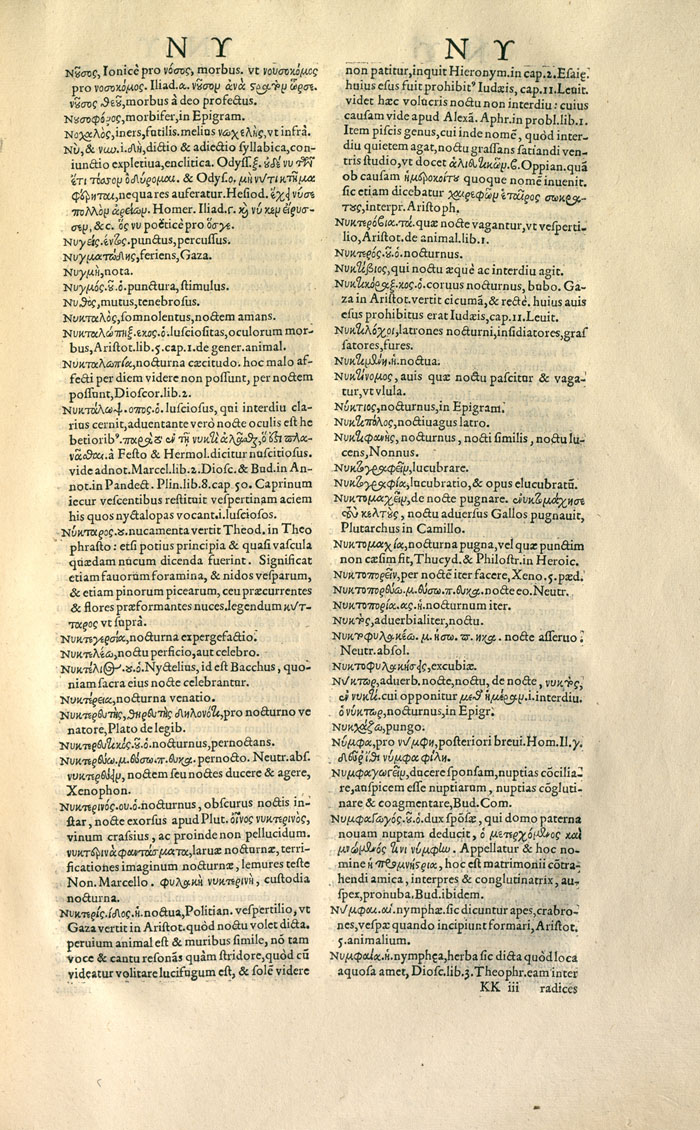 Ν Υ
Νῦσος, Ionicè pro νόσος, morbus. vt νουσοκόμος
pro νοσοκόμος. Iliad.α. νοῦσον ἀνὰ στρατὸν ὦρσε.
νοῦσος θεοῦ, morbus à deo profectus.
Νυσοφόρος, morbifer, in Epigram.
Νοχαλὸς, iners, futilis. melius νωχελὴς, vt infrà.
Νὺ, & νω.i.δὴ, dictio & adiectio syllabica, con-
iunctio expletiua, enclitica. Odyss.ξ. οὐδέ νυ
ἔτι τόσσον ὀδύρομαι. & Odys.ο. μή νύ τι κτῆμα
φέρηται, nequa res auferatur. Hesiod.
πολλὸν ἀρείων. Homer. Iliad.
σεν, &c. ὅς νυ poëticè pro ὅσγε.
Νυγεὶς.έντος. punctus, percussus.
Νυγματώδης, feriens, Gaza.
Νυγμὴ, nota.
Νυγμός.ȣ.ὁ. punctura, stimulus.
Νυθὸς, mutus, tenebrosus.
Νυκταλὸς, somnolentus, noctem amans.
Νυκταλώπηξ.εκος.ὁ. lusciositas, oculorum mor-
bus, Aristot.lib.5.cap.1.de gener.animal.
Νυκταλωπία, nocturna cæcitudo. hoc malo af-
fecti per diem videre non possunt, per noctem
possunt, Dioscor.lib.2.
Νυκτάλωψ.οπος.ὁ. lusciosus, qui interdiu cla-
rius cernit, aduentante verò nocte oculis est he
betiorib⁹.
à Festo & Hermol. dicitur nuscitiosus.
vide adnot. Marcel.lib.2. Diosc. & Bud. in An-
not. in Pandect. Plin.lib.8.cap.50. Caprinum
iecur vescentibus restituit vespertinam aciem
his quos nyctalopas vocant.i.lusciosos.
Νύκταρος.ȣ. nucamenta vertit Theod. in Theo
phrasto: etsi potius principia & quasi vascula
quædam nucum dicenda fuerint. Significat
etiam fauorum foramina, & nidos vesparum,
& etiam pinorum picearum, ceu præcurrentes
& flores præformantes nuces. legendum κύτ-
ταρος vt suprà.
Νυκτεγερσία, nocturna expergefactio.
Νυκτελέω, noctu perficio, aut celebro.
Νυκτέλιος.ȣ.ὁ. Nyctelius, id est Bacchus, quo-
niam sacra eius nocte celebrantur.
Νυκτέρεια, nocturna venatio.
Νυκτερευτὴς, θηρευτὴς δηλονότι, pro nocturno ve
natore, Plato de legib.
Νυκτερευτικός.ȣ.ὁ. nocturnus, pernoctans.
Νυκτερεύω.μ.εύσω.π.ευκα. pernocto. Neutr. abs.
νυκτερεύειν, noctem seu noctes ducere & agere,
Xenophon.
Νυκτερινός.ου.ὁ. nocturnus, obscurus noctis in-
star, nocte exorsus apud Plut. οἶνος νυκτερινὸς,
vinum crassius, ac proinde non pellucidum.
νυκτερινὰ φαντάσματα, laruæ nocturnæ, terri-
ficationes imaginum nocturnæ, lemures teste
Non. Marcello. φυλακὴ νυκτερινὴ, custodia
nocturna.
Νυκτερὶς.ίδος.ἡ. noctua, Politian. vespertilio, vt
Gaza vertit in Aristot. quòd noctu volet dicta.
peruium animal est & muribus simile, nō tam
voce & cantu resonās quàm stridore, quòd cū
videatur volitare lucifugum est, & solē videre
Ν Υ
non patitur, inquit Hieronym. in cap.2. Esaię.
huius esus fuit prohibit⁹ Iudæis, cap.11. Leuit.
videt hæc volucris noctu non interdiu: cuius
causam vide apud Alexā. Aphr. in probl.lib.1.
Item piscis genus, cui inde nomē, quòd inter-
diu quietem agat, noctu grassans satiandi ven-
tris studio, vt docet ἁλιευτικῶν.β. Oppian. quā
ob causam ἡμερόκοιτου quoque nomē inuenit.
sic etiam dicebatur χαιρεφῶν ἑταῖρος σωκρά-
τους, interpr. Aristoph.
Νυκτερόβια.τά. quæ nocte vagantur, vt vesperti-
lio, Aristot. de animal.lib.1.
Νυκτερός.ȣ.ὁ. nocturnus.
Νυκτίβιος, qui noctu æquè ac interdiu agit.
Νυκτικόραξ.κος.ὁ. coruus nocturnus, bubo. Ga-
za in Aristot. vertit cicumā, & rectè. huius auis
esus prohibitus erat Iudæis, cap.11. Leuit.
Νυκτιλόχοι, latrones nocturni, insidiatores, gras
satores, fures.
noctua.
Νυκτινόμος, auis quæ noctu pascitur & vaga-
tur, vt vlula.
Νύκτιος, nocturnus, in Epigram.
Νυκτιπόλος, noctiuagus latro.
Νυκτιφανὴς, nocturnus, nocti similis, noctu lu-
cens, Nonnus.
Νυκτογραφεῖν, lucubrare.
Νυκτογραφία, lucubratio, & opus elucubratū.
Νυκτομαχεῖν, de nocte pugnare. ἐνυκτομάχησε
κελτοὺς, noctu aduersus Gallos pugnauit,
Plutarchus in Camillo.
Νυκτομαχία, nocturna pugna, vel quæ punctim
non cæsim fit, Thucyd. & Philostr. in Heroic.
Νυκτοπορεῖν, per noctē iter facere, Xeno.5. pæd.
Νυκτοπορεύω.μ.εύσω.π.ευκα. nocte eo. Neutr.
Νυκτοπορία.ας.ἡ. nocturnum iter.
Νυκτὸς, aduerbialiter, noctu.
Νυκτοφυλακέω.μ.ήσω.π.ηκα. nocte asseruo.
Neutr. absol.
Νυκτοφυλάκησις, excubiæ.
Νύκτωρ, aduerb. nocte, noctu, de nocte, νυκτὸς,
ἐν νυκτί. cui opponitur μεθ' ἡμέραν.i. interdiu.
ὁ νύκτωρ, nocturnus, in Epigr.
Νυκχάζω, pungo.
Νύμφα, pro νύμφη, posteriori breui. Hom.Il.γ.
δεῦρ' ἴθι νύμφα φίλη.
Νυμφαγωγεῖν, ducere sponsam, nuptias cōcilia-
re, auspicem esse nuptiarum, nuptias cōgluti-
nare & coagmentare, Bud. Com.
Νυμφαγωγός.ȣ.ὁ. dux spōsæ, qui domo paterna
nouam nuptam deducit, ὁ μετερχόμενος καὶ
νύμφην. Appellatur & hoc no-
mine ἡ προμνήστρια, hoc est matrimonii cōtra-
hendi amica, interpres & conglutinatrix, au-
spex, pronuba. Bud. ibidem.
Νύμφαι.αἱ. nymphæ. sic dicuntur apes, crabro-
nes, vespæ quando incipiunt formari, Aristot.
5. animalium.
Νυμφαία.ἡ. nymphęa, herba sic dicta quòd loca
aquosa amet, Diosc.lib.3. Theophr. eam inter
KK iii radices